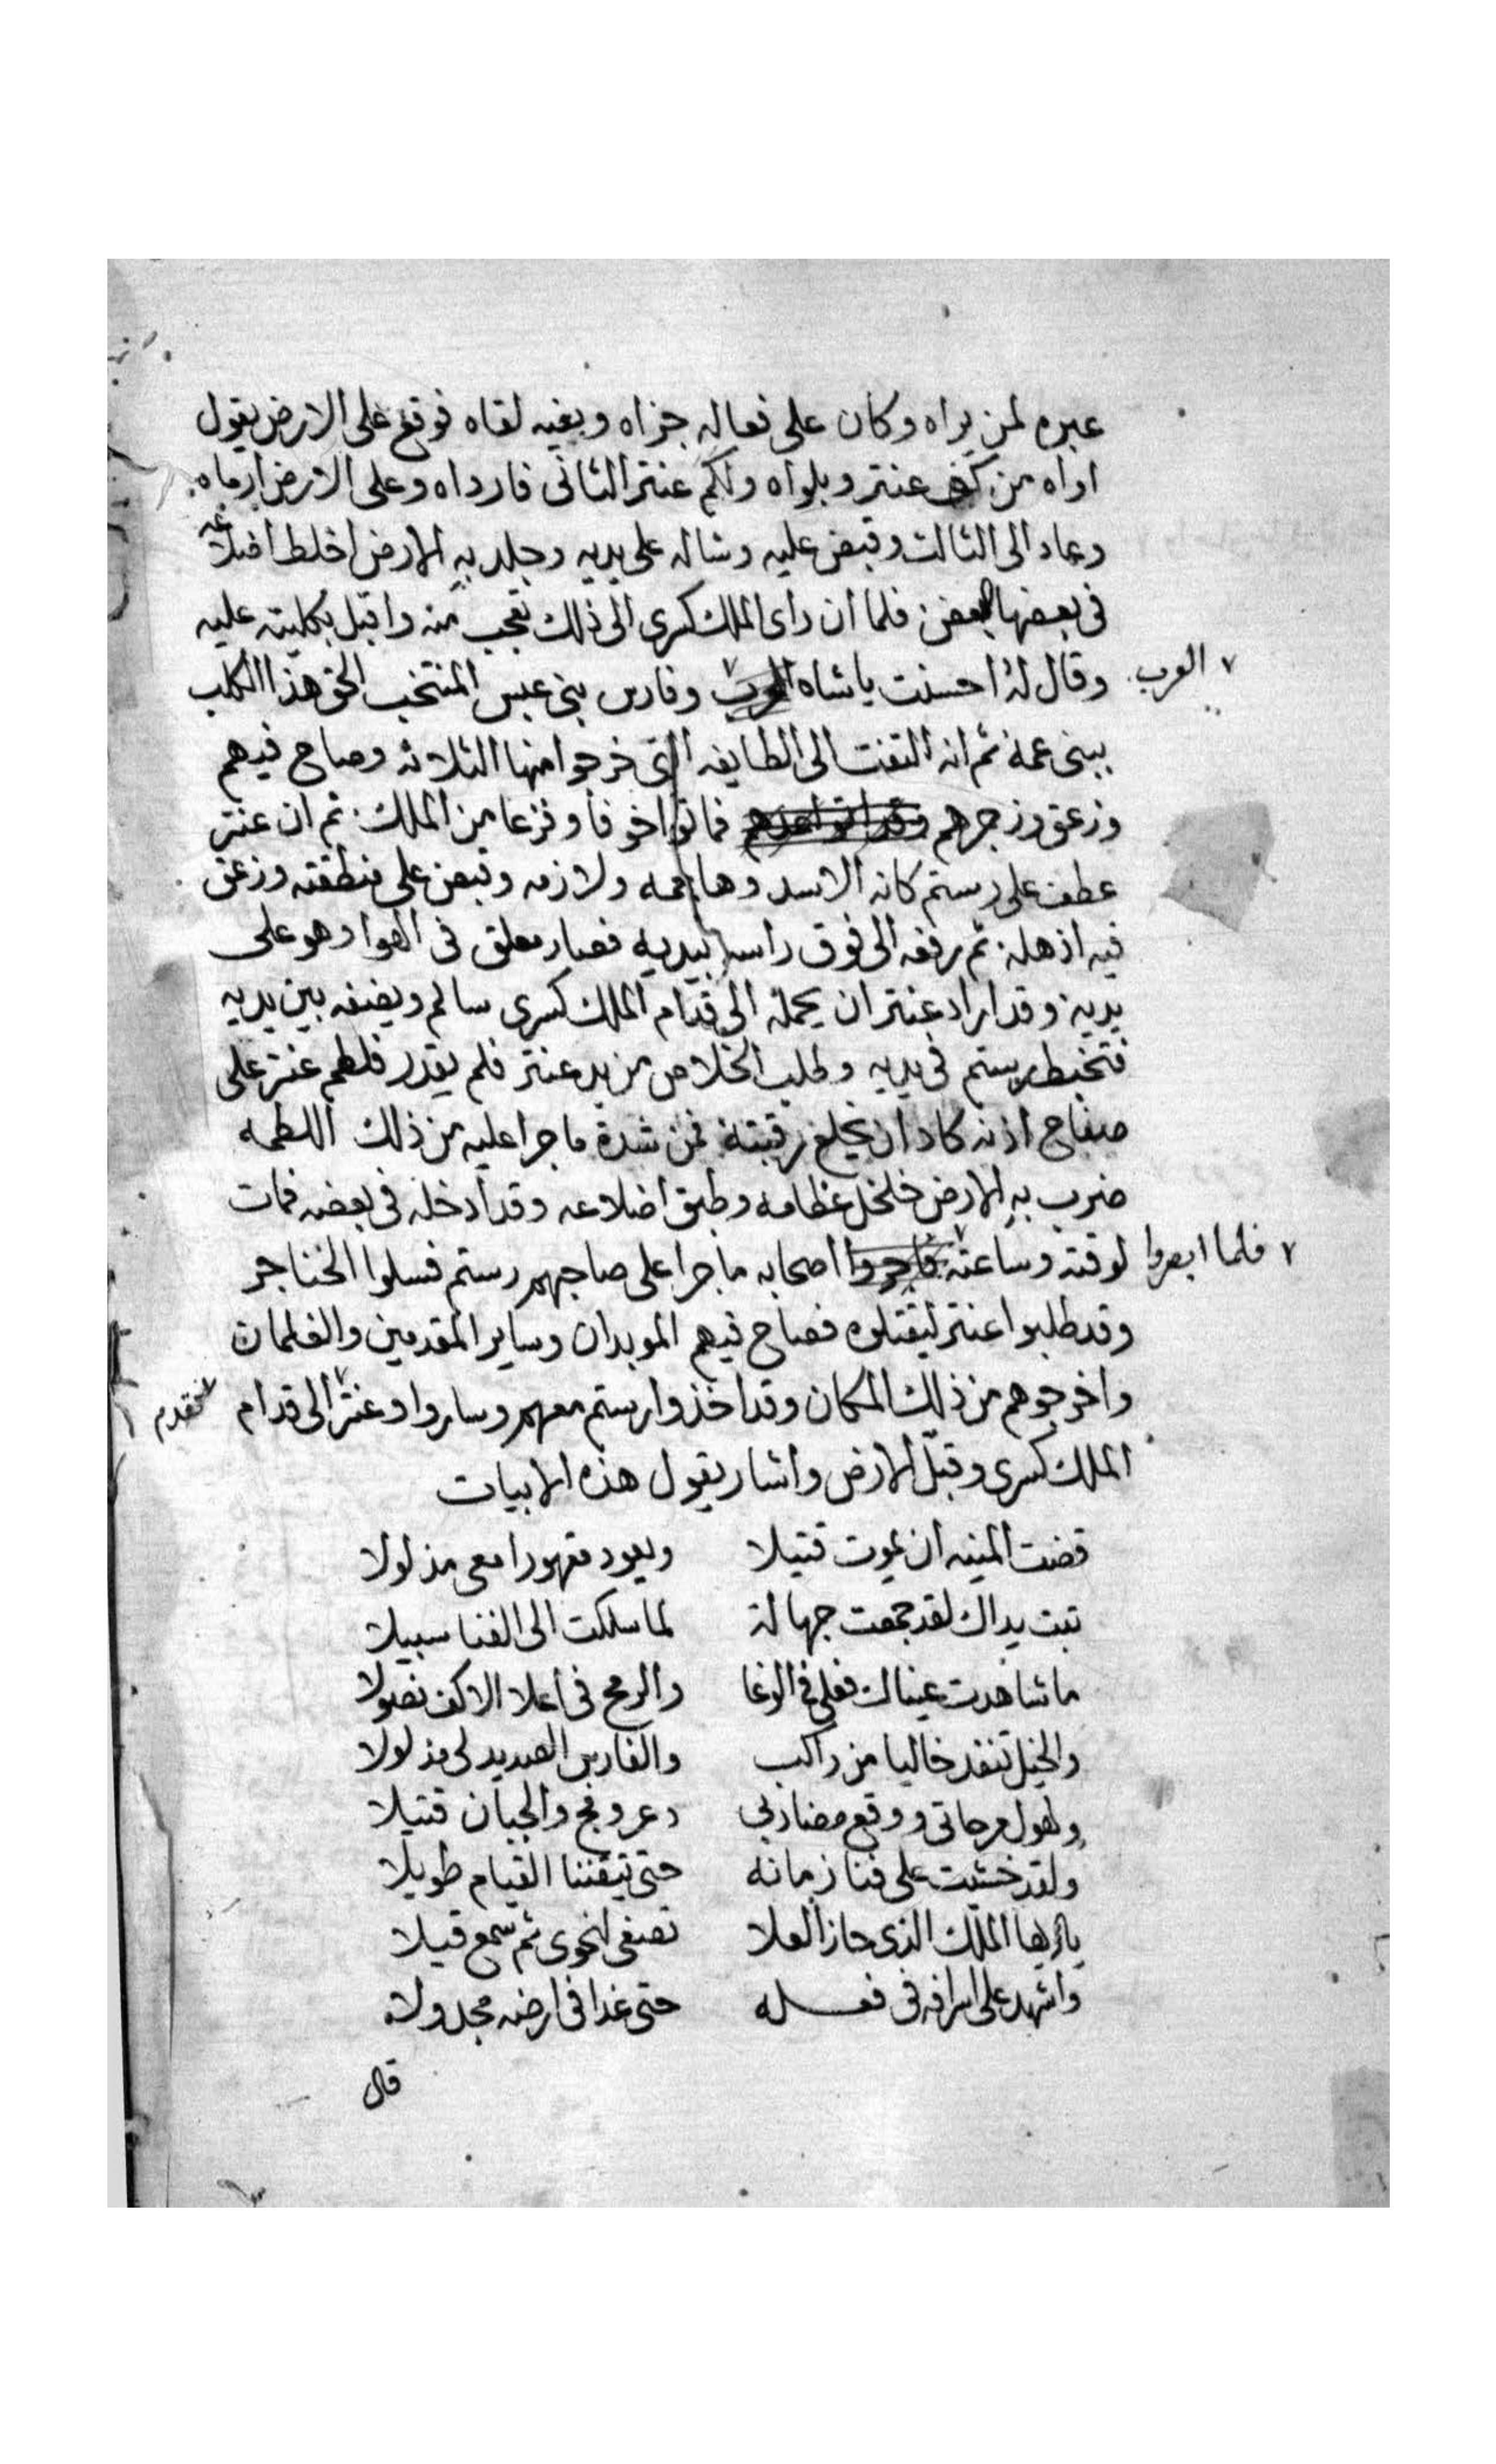 عبره لمن يراه وكان على فعاله جزاه وبغيه لقاه فوقع على الارض يقول
اواه من كف عنتر وبلواه ولكم عنتر الثانى فارداه وعلى الارض ارماه
وعاد الى الثالث وقبض عليه وشاله على يديه وجلد به الارض اخلط اضلاعه
فى بعضها بعض فلما ان راى الملك كسرى الى ذلك تعجب منه واقبل بكليته عليه
وقال له احسنت ياشاه العرب وفارس بنى عبس المنتخب الحق هذا الكلب
ببنى عمه ثم انه التفت الى الطايفه التى خرجوا منها الثلاثه وصاح فيهم
وزعق وزجرهم فماتوا خوفا وفزعا من الملك ثم ان عنتر
عطف على رستم كانه الاسد وهاجمه ولازمه وقبض على منطقته وزعق
فيه اذهله ثم رفعه الى فوق راسه بيديه فصار معلق فى الهوا وهو على
يديه وقد اراد عنتر ان يحمله الى قدام الملك كسرى سالم ويضعه بين يديه
فتخبط رستم فى يديه وطلب الخلاص من يد عنتر فلم يقدر فلطم عنتر على
صفاح اذنه كاد ان يخلع رقبته فمن شدة ما جرا عليه من ذلك اللطمه
ضرب به الارض خلخل عظامه وطبق اضلاعه وقد ادخله فى بعضه فمات
لوقته وساعته فلما ابصروا اصحابه ما جرا على صاحبهم رستم فسلوا الخناجر
وقد طلبوا عنتر ليقتلوه فصاح فيهم الموبدان وساير المقدمين والغلمان
واخرجوهم من ذلك المكان وقد اخذوا رستم معهم وساروا وعنتر تقدم الى قدام
الملك كسرى وقبل الارض واشار يقول هذه الابيات
قضت المنيه ان يموت قتيلا ويعود مقهورا معى مذلولا
تبت يداك لقد جمعت جهالة لما سلكت الى الفنا سبيلا
ما شاهدت عيناك فعلى فى الوغا والرمح فى اعلا الاكف نصولا
والخيل تنفد خاليا من راكب والفارس الصديد لى مذلولا
ولهول مرحاتى ووقع مضاربى والجبان قتيلا
ولقد خشيت على فنا زمانه حتى تيقننا القيام طويلا
يا ايها الملك الذى حاز العلا تصغى لنحوى ثم سمع قيلا
واشهد على اسرافه فى فعله حتى غدا فى ارضه مجدولا
قال